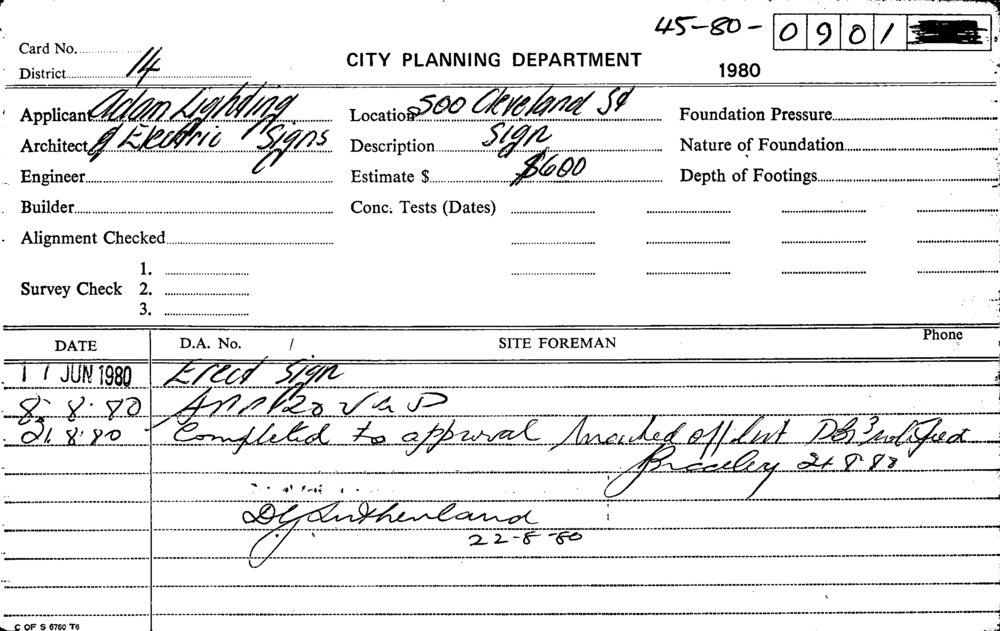 45-80-0901
Card No.
District 14
CITY PLANNING DEPARTMENT
1980
Applicant Adam Lighting
Location 500 Cleveland St
Foundation Pressure
Architect & Electric Signs
Description Sign
Nature of Foundation
Engineer
Estimate $ $600
Depth of Footings
Builder
Conc. Tests (Dates)
Alignment Checked
1.
Survey Check 2.
3.
DATE D.A. No. / SITE FOREMAN Phone
11 JUN 1980 Erect Sign
8. 8. 80 APPROVED
21. 8. 80 Completed to approval marked off list notified
21 8 80
D G Sutherland
22-8-80
C OF S 6760 T6